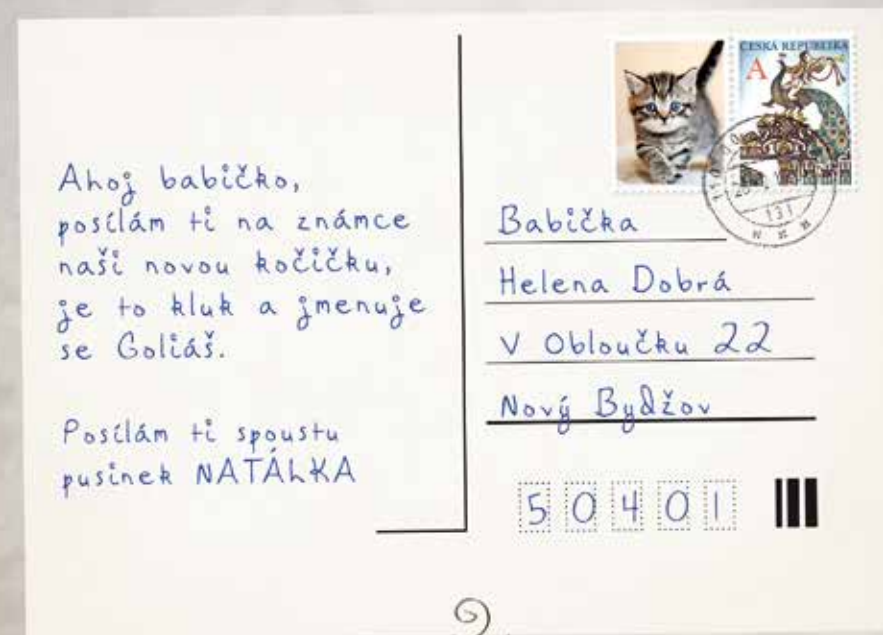 Ahoj babičko,
posílám ti na známce
naši novou kočičku,
je to kluk a jmenuje
se Goliáš.
Posílám ti spoustu
pusinek NATÁLKA
ČESKÁ REPUBLIKA
A
131
Babička
Helena Dobrá
V Obloučku 22
Nový Bydžov
50401